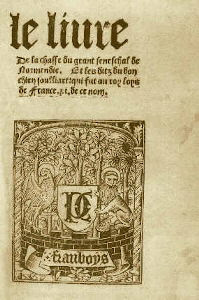 le liure
De la chasse du grant seneschal de
Normendie. Et les ditz du bon
chien souillart, qui fut au roy loys
de France. xi. de ce nom.
PC
Auboys